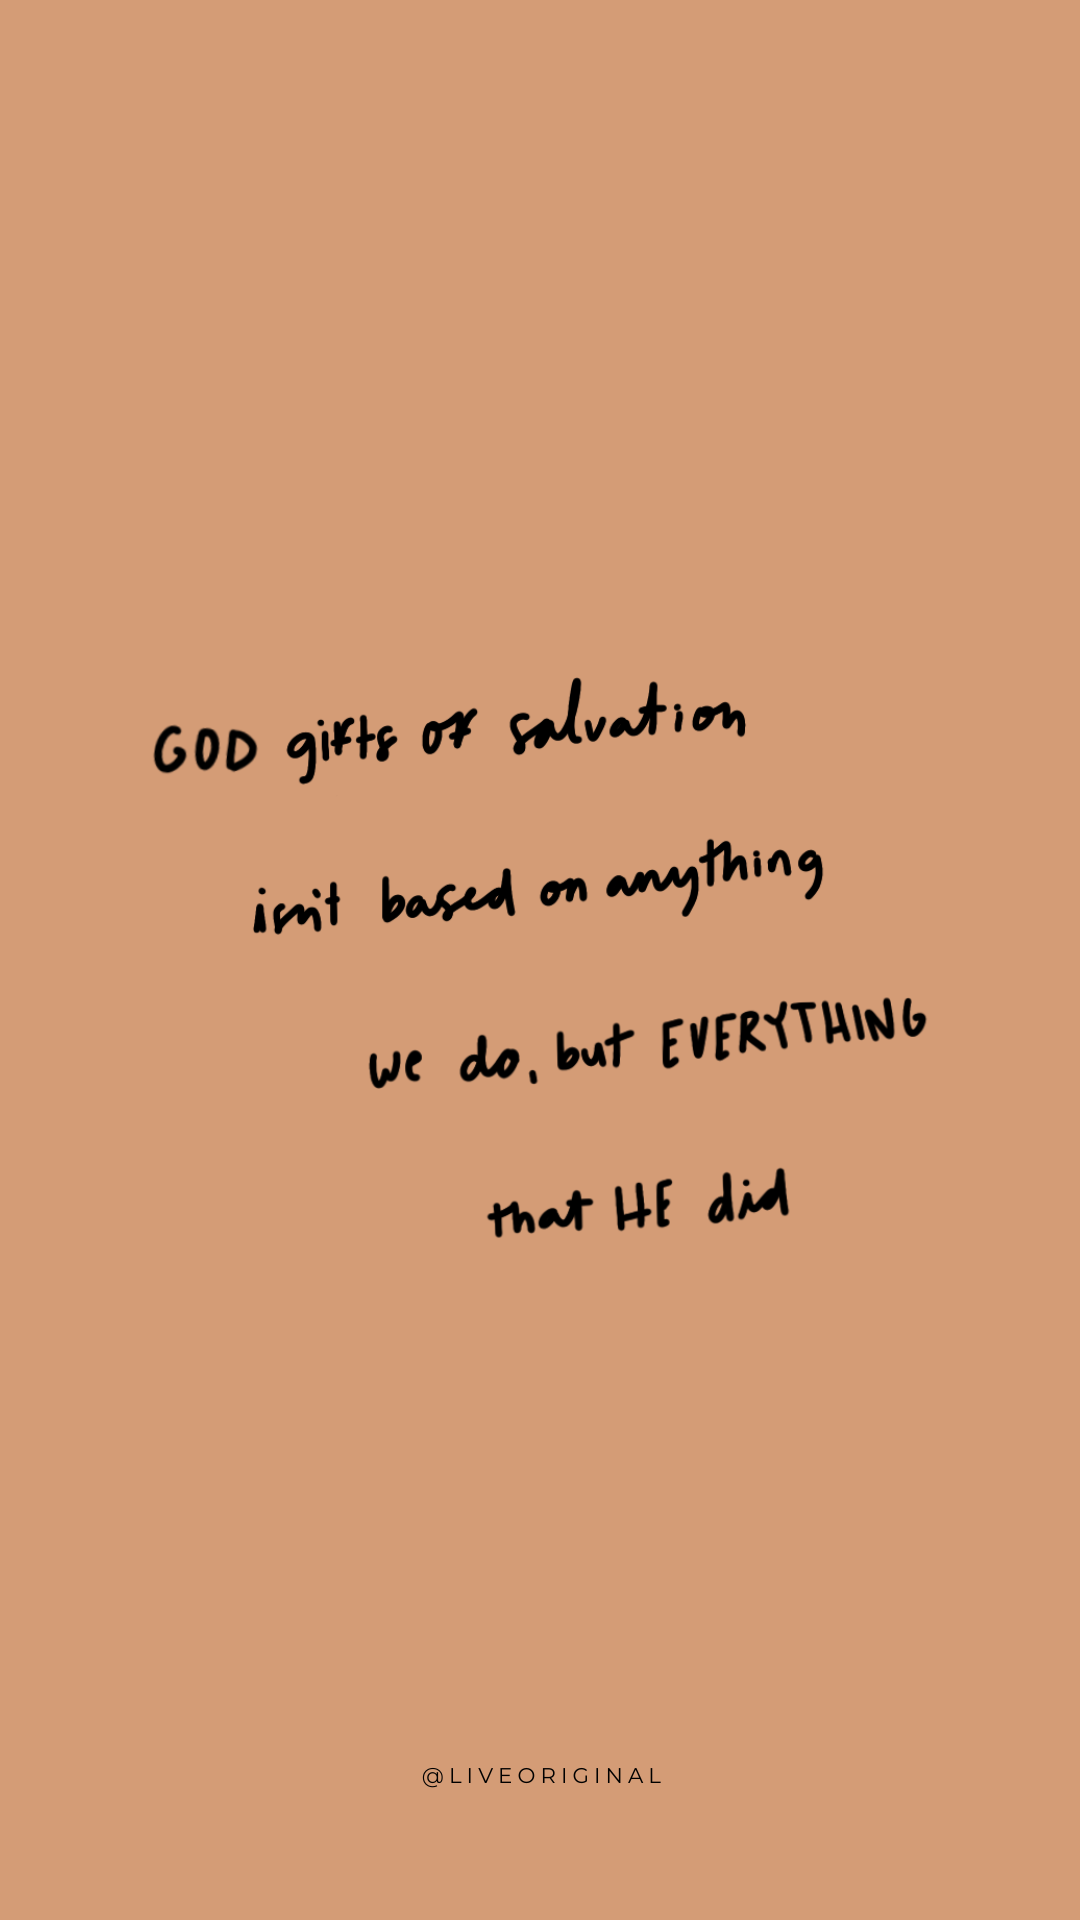 GOD gifts of salvation
isn't based on anything
we do, but EVERYTHING
that HE did
@LIVEORIGINAL